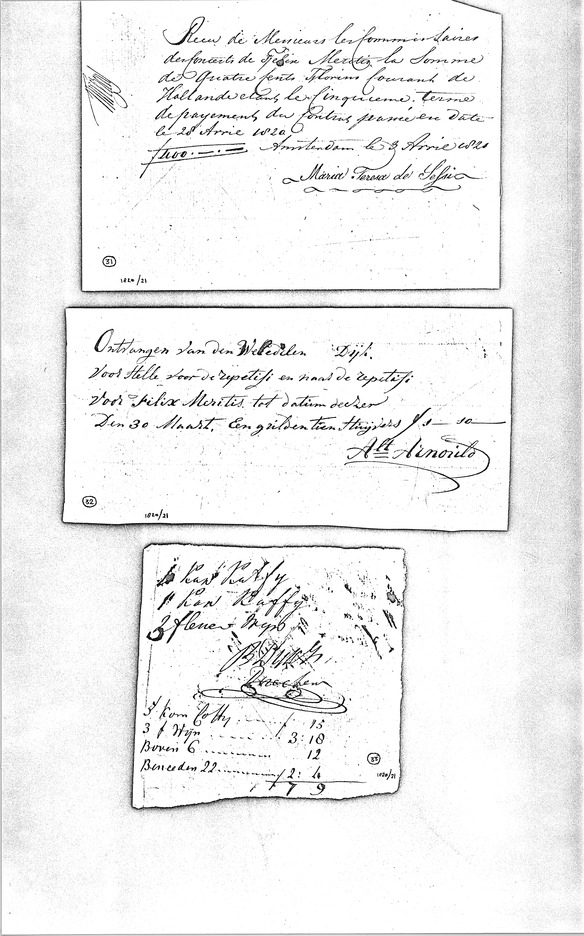 Recu de Messieurs les Commissaires
des Concerts de Felix Meritis la Somme
de Quatre Cents Florins Courant de
Hollande etant le Cinquieme terme
de payement du Contrat passé en date
le 28 Avril 1820
Amsterdam le 3 Avril 1821
ƒ400.—.—
Maria Teresa de Sessi
31
1820/21
Ontvangen van den Weledelen Dijk.
voor Stelle voor de repetisi en naar de repetisi
voor Felix Meritis tot datum deezer
Den 30 Maart. Een gulden tien Stuijvers ƒ 1 — 10 —
Alt Arnould
32
1820/21
1 Kan Koffy
1 Kan Koffy
3 flesen Wyn
3 kom Coffy ƒ 15
3 f Wyn 3: 18
Boven 6 12
Beneeden 22 ƒ 2: 4
ƒ 7 9
33
1820/21